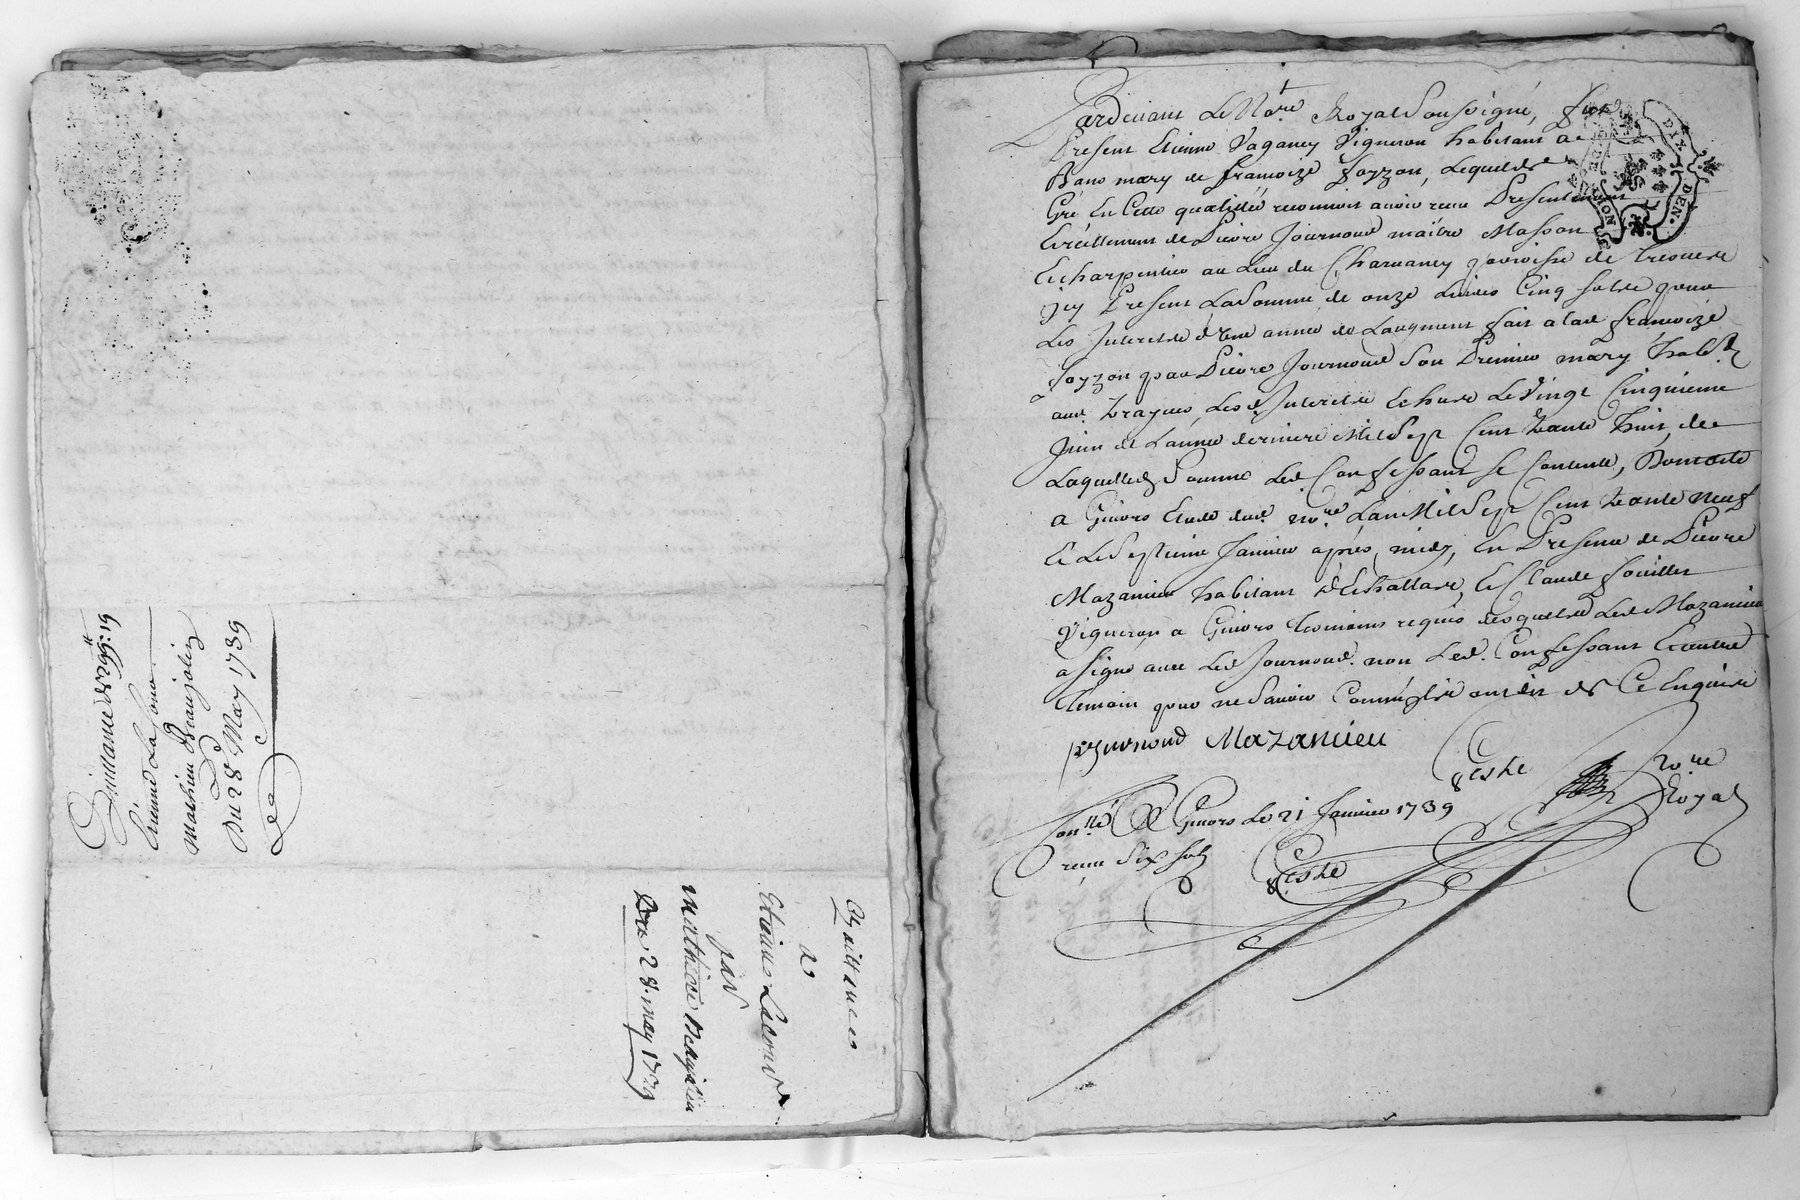 Quittance de 299# : 19
Etienne La Cour
Mathieu Beaujolin
Du 28 May 1739
Quittances
a
Etienne Lacour
par
mathieu Beaujolin
Du 28. may 1739
Pardevant Le No.re Royal Soussigné, fut
Present Etienne Vaganey Vigneron habitant a
Bans mary de francoize foyzon, Lequel de
Gré En Cette qualitté reconnoit avoir recu Presentement
Et réellement de Pierre Journoud maître Masson
Et charpentier au Lieu du Charvaney parroisse de Treve
jcy Present La Somme de onze Livres Cinq sols pour
Les Interets d'Une année de Laugment fait a lad. francoize
foyzon par Pierre Journoud Son Premier mary
aud. Les d. Interets Echus Le Vingt Cinquieme
Juin de Lannée derniere Mil Sept Cent trante huit, de
Laquelle Somme Led. Confessant Se Contente, Dont acte
a Givors Etude dud. No.re Lan Mil Sept Cent trante neuf
Et Le Septieme Janvier après midy, En Presence de Pierre
Mazanieu habitant d'Echallas, Et Claude foüillet
Vigneron a Givors temoins requis desquels Led. Mazanieu
a Signé avec Led. Journoud. non Led. Confessant Et autre
temoin pour ne Savoir Comme ils ont dit de Ce Enquis
p Journoud Mazanieu
No.re
Royal
Con.llé A Givors Le 21 Janvier 1739
recu Six sols
DIX DEN.
LYON